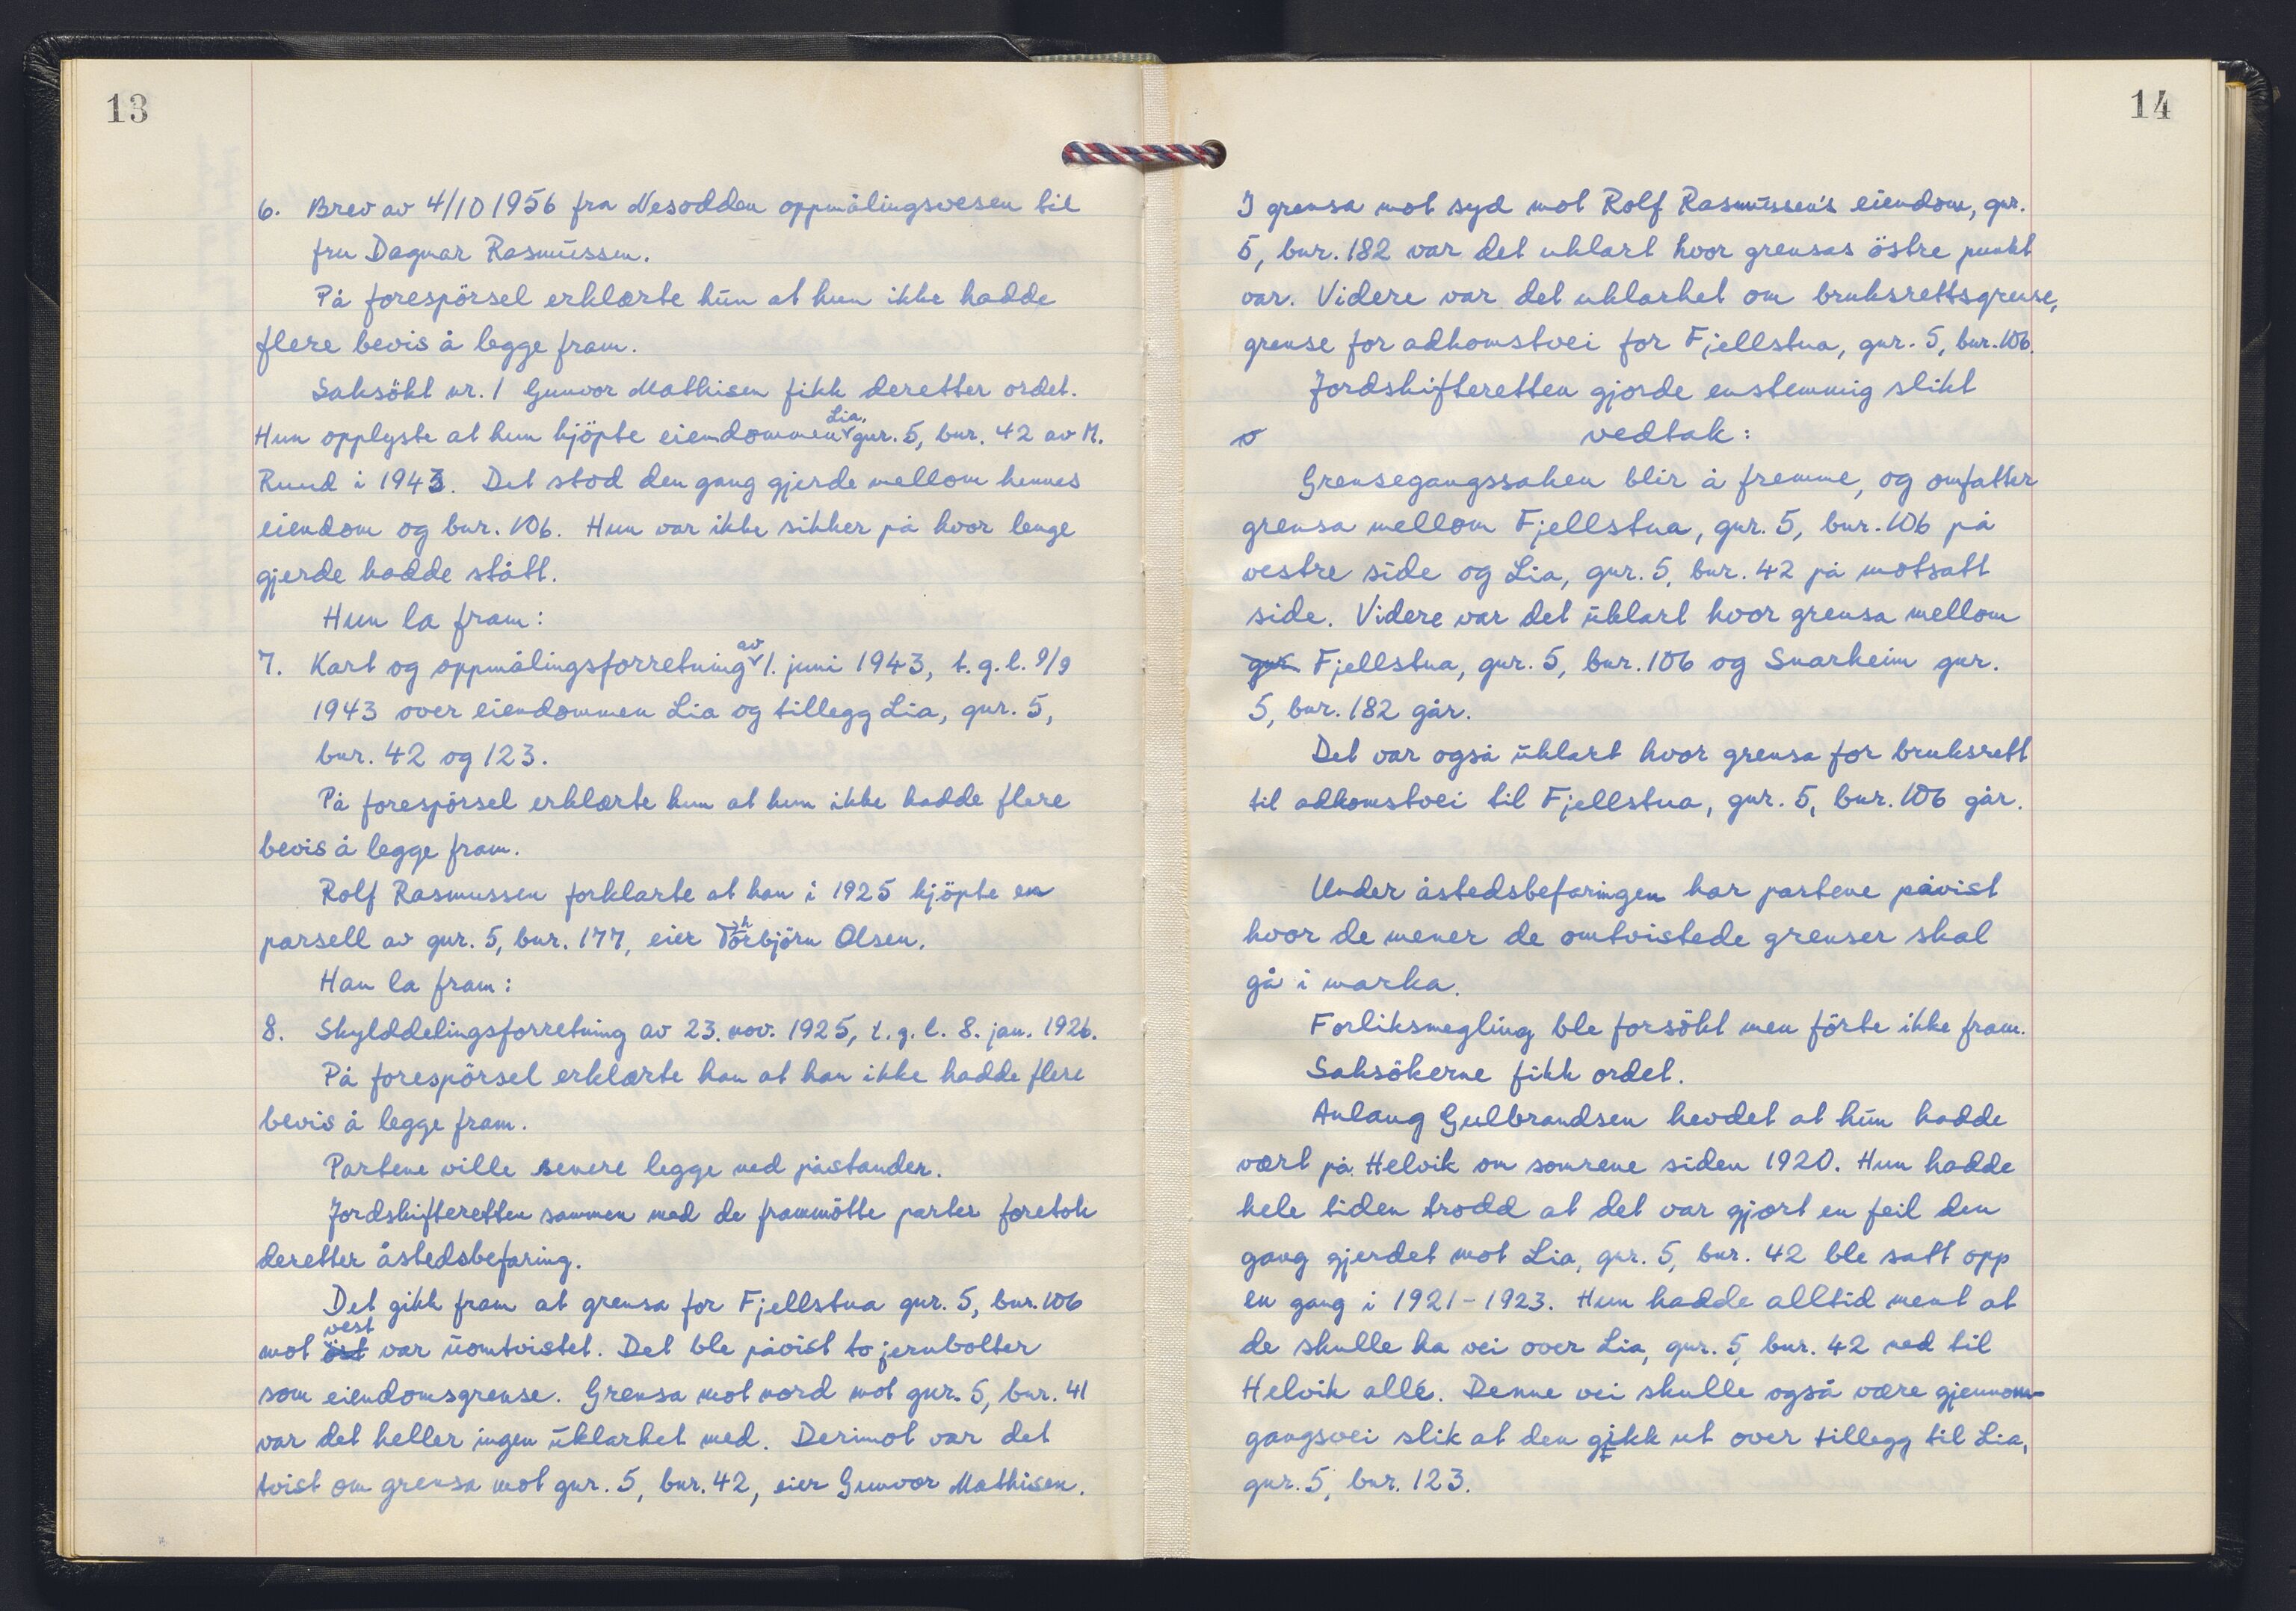 13
6. Brev av 4/10 1956 fra Nesodden oppmålingsvesen til
fru Dagnar Rasmussen.
På forespörsel erklærte hun at hun ikke hadde
flere bevis å legge fram.
Saksökt nr. 1 Gunvor Mathisen fikk deretter ordet.
Hun opplyste at hun kjöpte eiendommen Lia, gnr. 5, bnr. 42 av M.
Ruud i 1943. Det stod den gang gjerde mellom hennes
eiendom og bnr. 106. Hun var ikke sikker på hvor lenge
gjerde hadde stått.
Hun la fram:
7. Kart og oppmålingsforretning av 1. juni 1943, t.g.l. 9/9
1943 over eiendommen Lia og tillegg Lia, gnr. 5,
bnr. 42 og 123.
På forespörsel erklærte hun at hun ikke hadde flere
bevis å legge fram.
Rolf Rasmussen forklarte at han i 1925 kjöpte en
parsell av gnr. 5, bnr. 177, eier Thorbjörn Olsen.
Han la fram:
8. Skylddelingsforretning av 23. nov. 1925, t.g.l. 8. jan. 1926.
På forespörsel erklærte han at han ikke hadde flere
bevis å legge fram.
Partene ville senere legge ned påstander.
Jordskifteretten sammen med de frammötte parter foretok
deretter åstedsbefaring.
Det gikk fram at grensa for Fjellstua gnr. 5, bnr. 106
mot öst vest var uomtvistet. Det ble påvist to jernbolter
som eiendomsgrense. Grensa mot nord mot gnr. 5, bnr. 41
var det heller ingen uklarhet med. Derimot var det
tvist om grensa mot gnr. 5, bnr. 42, eier Gunvor Mathisen.
14
I grensa mot syd mot Rolf Rasmussen's eiendom, gnr.
5, bnr. 182 var det uklart hvor grensas östre punkt
var. Videre var det uklarhet om bruksrettsgrense,
grense for adkomstvei for Fjellstua, gnr. 5, bnr. 106.
Jordskifteretten gjorde enstemmig slikt
vedtak:
Grensegangssaken blir å fremme, og omfatter
grensa mellom Fjellstua, gnr. 5, bnr. 106 på
vestre side og Lia, gnr. 5, bnr. 42 på motsatt
side. Videre var det uklart hvor grensa mellom
gnr. Fjellstua, gnr. 5, bnr. 106 og Snarheim gnr.
5, bnr. 182 går.
Det var også uklart hvor grensa for bruksrett
til adkomstvei til Fjellstua, gnr. 5, bnr. 106 går.
Under åstedsbefaringen har partene påvist
hvor de mener de omtvistede grenser skal
gå i marka.
Forliksmegling ble forsökt men förte ikke fram.
Saksökerne fikk ordet.
Aulaug Gulbrandsen hevdet at hun hadde
vært på Helvik om somrene siden 1920. Hun hadde
hele tiden trodd at det var gjort en feil den
gang gjerdet mot Lia, gnr. 5, bnr. 42 ble satt opp
en gang i 1921-1923. Hun hadde alltid ment at
de skulle ha vei over Lia, gnr. 5, bnr. 42 ned til
Helvik allé. Denne vei skulle også være gjennom-
gangsvei slik at den gikk ut over tillegg til Lia,
gnr. 5, bnr. 123.